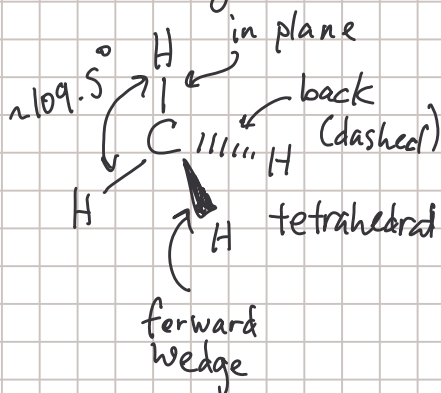 in plane
~109.5°
H
back
(dashed)
C
H
H
H
tetrahedral
forward
wedge